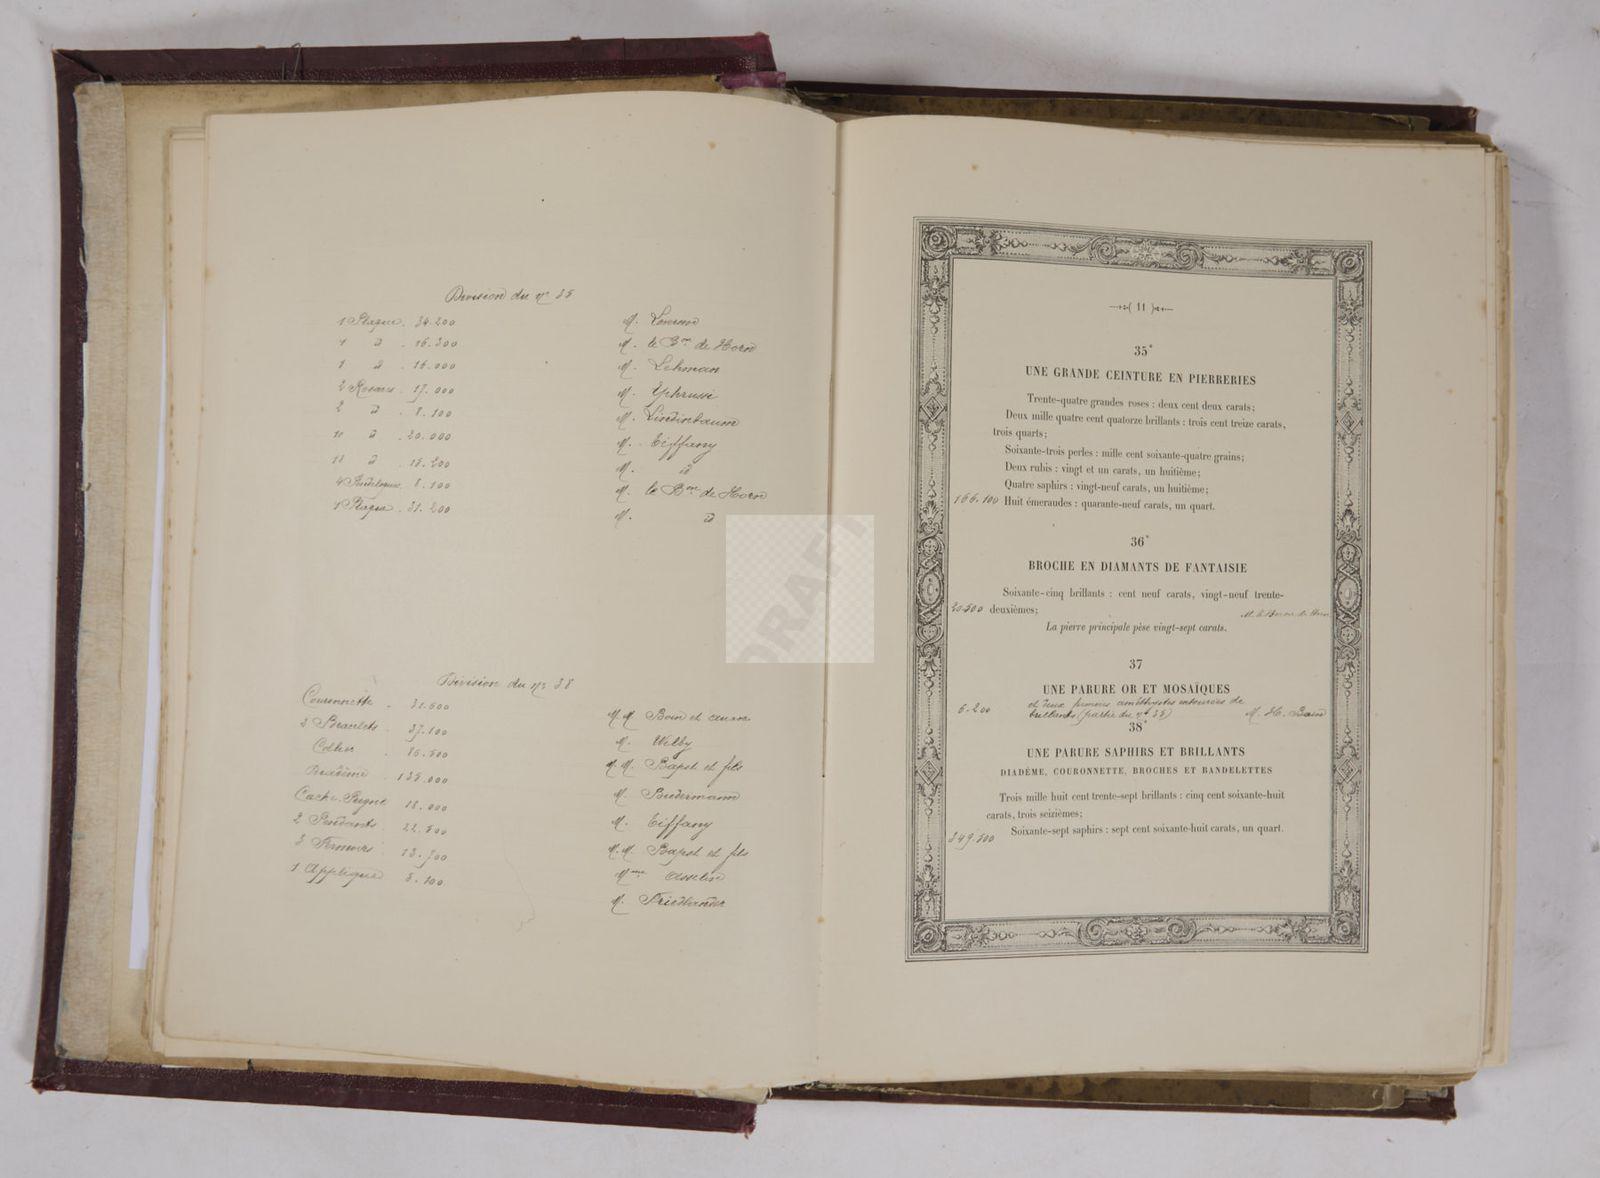 Division du nº 35
1 Plaque . 34.200 M.
1 d . 16.300 M. le Bon de Horn
1 d . 16.000 M. Lehman
2 Rosaces . 17.000 M. Ephrussi
2 d . 8.100 M. Lindinbaum
11 d . 20.000 M. Tiffany
11 d . 15.200 M. d
4 Pendeloques . 8.100 M. le Bon de Horn
1 Plaque . 31.200 M. d
DRAFT
Division du nº 38
Couronnette . 31.600 M.M. Boin et
3 Bracelets . 37.100 M. Welby
Collier . 86.500 M.M. Bapst et fils
Diadème . 135.000 M. Bidermann
Cache-Peigne 18.000 M. Tiffany
2 Pendants . 22.500 M.M. Bapst et fils
3 Fermoirs . 13.700 Mme Asselin
1 Applique 5.100 M. Friedlander
11
35*
UNE GRANDE CEINTURE EN PIERRERIES
Trente-quatre grandes roses : deux cent deux carats;
Deux mille quatre cent quatorze brillants : trois cent treize carats,
trois quarts;
Soixante-trois perles : mille cent soixante-quatre grains;
Deux rubis : vingt et un carats, un huitième;
Quatre saphirs : vingt-neuf carats, un huitième;
166.100 Huit émeraudes : quarante-neuf carats, un quart.
36*
BROCHE EN DIAMANTS DE FANTAISIE
Soixante-cinq brillants : cent neuf carats, vingt-neuf trente-
20.500 deuxièmes; M. le Baron de Horn
La pierre principale pèse vingt-sept carats.
37
UNE PARURE OR ET MOSAÏQUES
6.200 et deux fermoirs améthystes entourées de
brillants (partie du nº 35) M. H. Bain
38*
UNE PARURE SAPHIRS ET BRILLANTS
DIADÈME, COURONNETTE, BROCHES ET BANDELETTES
Trois mille huit cent trente-sept brillants : cinq cent soixante-huit
carats, trois seizièmes;
349.500 Soixante-sept saphirs : sept cent soixante-huit carats, un quart.